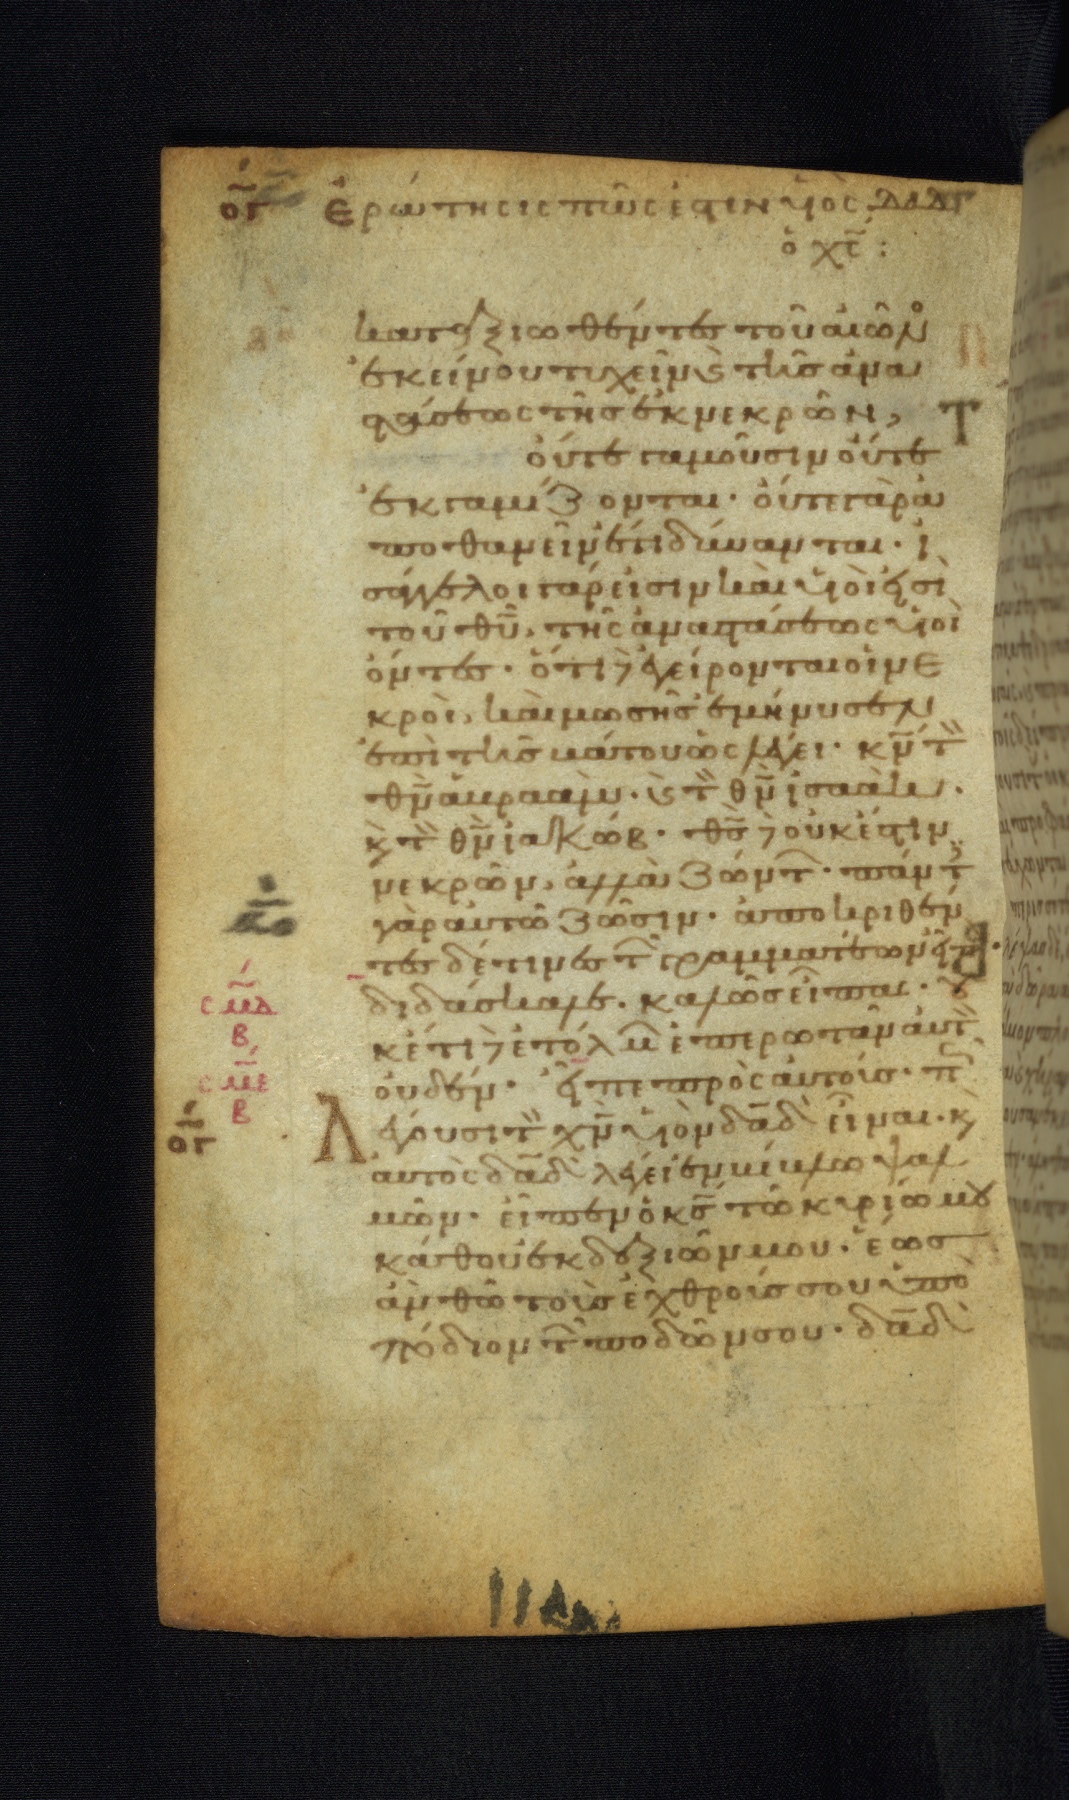 ογ Ἐρώτησις πῶς ἐστιν υἱὸς δαδ
ὁ χς̅ :
καταξιωθέντες τοῦ αἰῶνο
ἐκείνου τυχεῖν ϗ τῆς ἀνα
στάσεως τῆς ἐκ νεκρῶν,
οὔτε γαμοῦσιν οὔτε
ἐκγαμίζονται· οὔτε γὰρ ἀ
ποθανεῖν ἔτι δύνανται· ἰ
σάγγελοι γάρ εἰσιν καὶ υἱοί εἰσι
τοῦ θυ̅, τῆς ἀναστάσεως υἱοὶ
ὄντες· ὅτι δὲ ἐγείρονται οἱ νε
κροὶ, καὶ μωσῆς ἐμήνυσεν
ἐπὶ τῆς βάτου ὡς λέγει· κν̅ τ
θν̅ ἀβραάμ· ϗ τ θν̅ ἰσαὰκ·
ϗ τ θν̅ ἰακώβ· θς̅ δὲ οὐκ ἔστιν
νεκρῶν, ἀλλὰ ζώντ· πάντ
γὰρ αὐτῶ ζῶσιν· ἀποκριθέν
τες δέ τινες τ γραμματέων εἶπ·
διδάσκαλε· καλῶς εἶπας· οὐ
σμδ
β
κέτι δὲ ἐτόλμ ἐπερωτᾶν αὐτ
οὐδέν· εἶπε πρὸς αὐτούς· π
σμε
β
ογ
Λέγουσι τ χν̅ υἱὸν δαδ εἶναι· ϗ
αὐτὸς δαδ λέγει ἐν βίβλω ψαλ
μῶν· εἶπεν ὁ κς̅ τῶ κυρίω μου
κάθου ἐκ δεξιῶν μου· ἕως
ἂν θῶ τοὺς ἐχθρούς σου ὑπο
πόδιον τ ποδῶν σου· δαδ